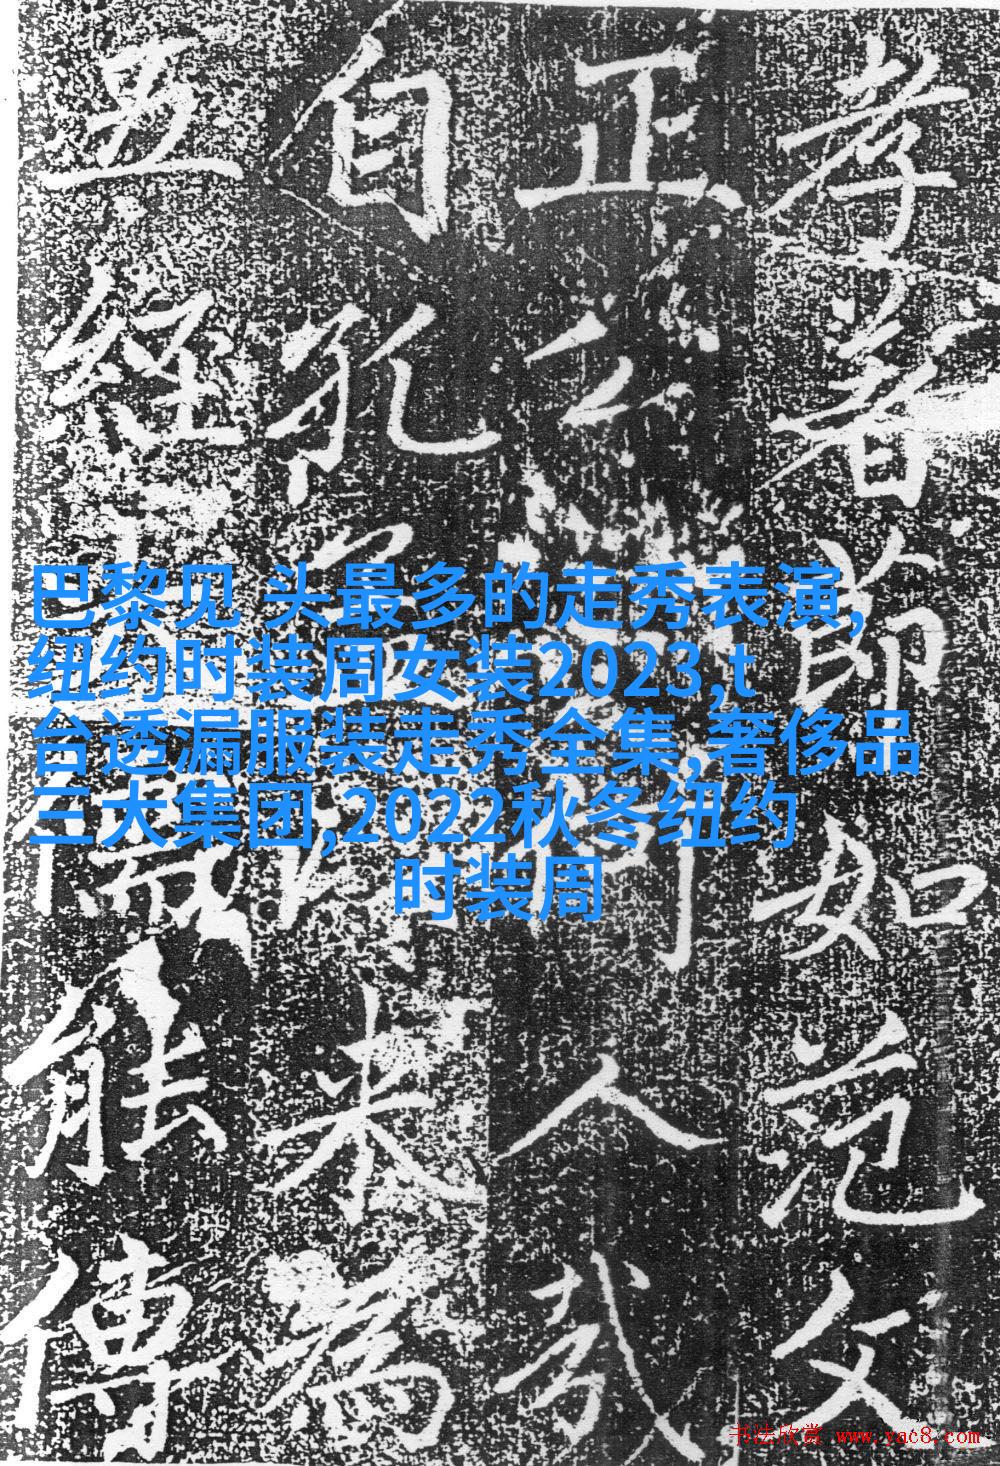 孝著節如范文
正公何人哉
自孔来為
五經儒能傳
巴黎见 头最多的走秀表演,
纽约时装周女装2023,t
台透漏服装走秀全集,奢侈品
三大集团,2022秋冬纽约
时装周
书法欣赏 www.yac8.com